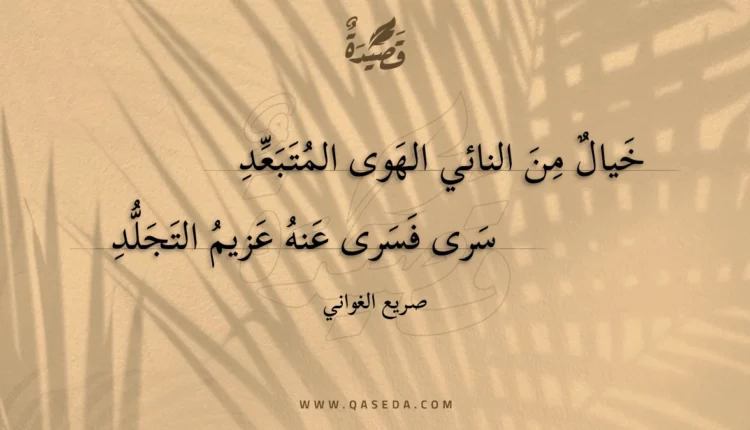 قَصِيْدَةٌ
خَيالٌ مِنَ النائي الهَوى المُتَبَعِّدِ
سَرى فَسَرى عَنهُ عَزيمُ التَجَلُّدِ
صريع الغواني
WWW.QASEDA.COM